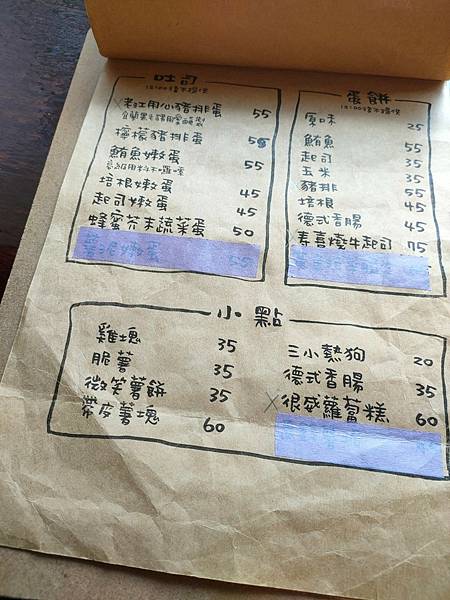 吐司
12:00後不提供
老紅用心豬排蛋 55
檸檬豬排蛋 55
鮪魚嫩蛋 55
培根嫩蛋 45
起司嫩蛋 45
蜂蜜芥末蔬菜蛋 50
薯泥嫩蛋 55
蛋餅
12:00後不提供
原味 25
鮪魚 55
起司 35
玉米 35
豬排 55
培根 45
德式香腸 45
壽喜燒牛起司 75
小點
雞塊 35
脆薯 35
微笑薯餅 35
帶皮薯塊 60
三小熱狗 20
德式香腸 35
很感蘿蔔糕 60